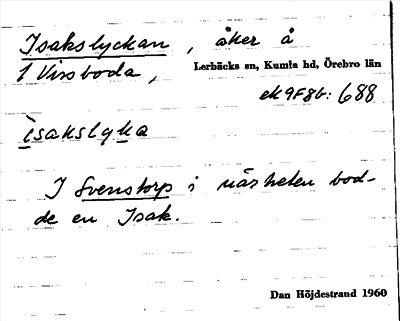 Isakslyckan, åker å
1 Vissboda,
Lerbäcks sn, Kumla hd, Örebro län
ek 9F8b: 688
ìsakslyka
I Svenstorp i närheten bod-
de en Isak.
Dan Höjdestrand 1960